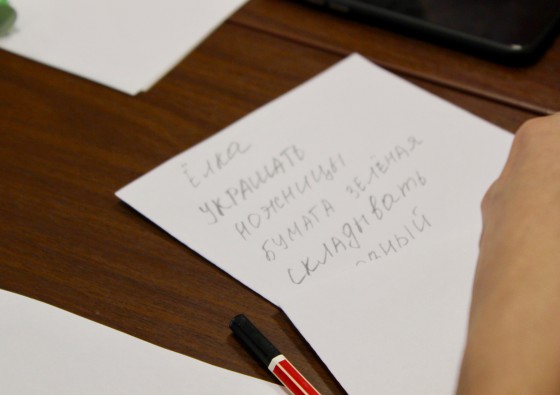 Ёлка
УКРАШАТЬ
НОЖНИЦЫ
БУМАГА ЗЕЛЁНАЯ
СКЛАДЫВАТЬ